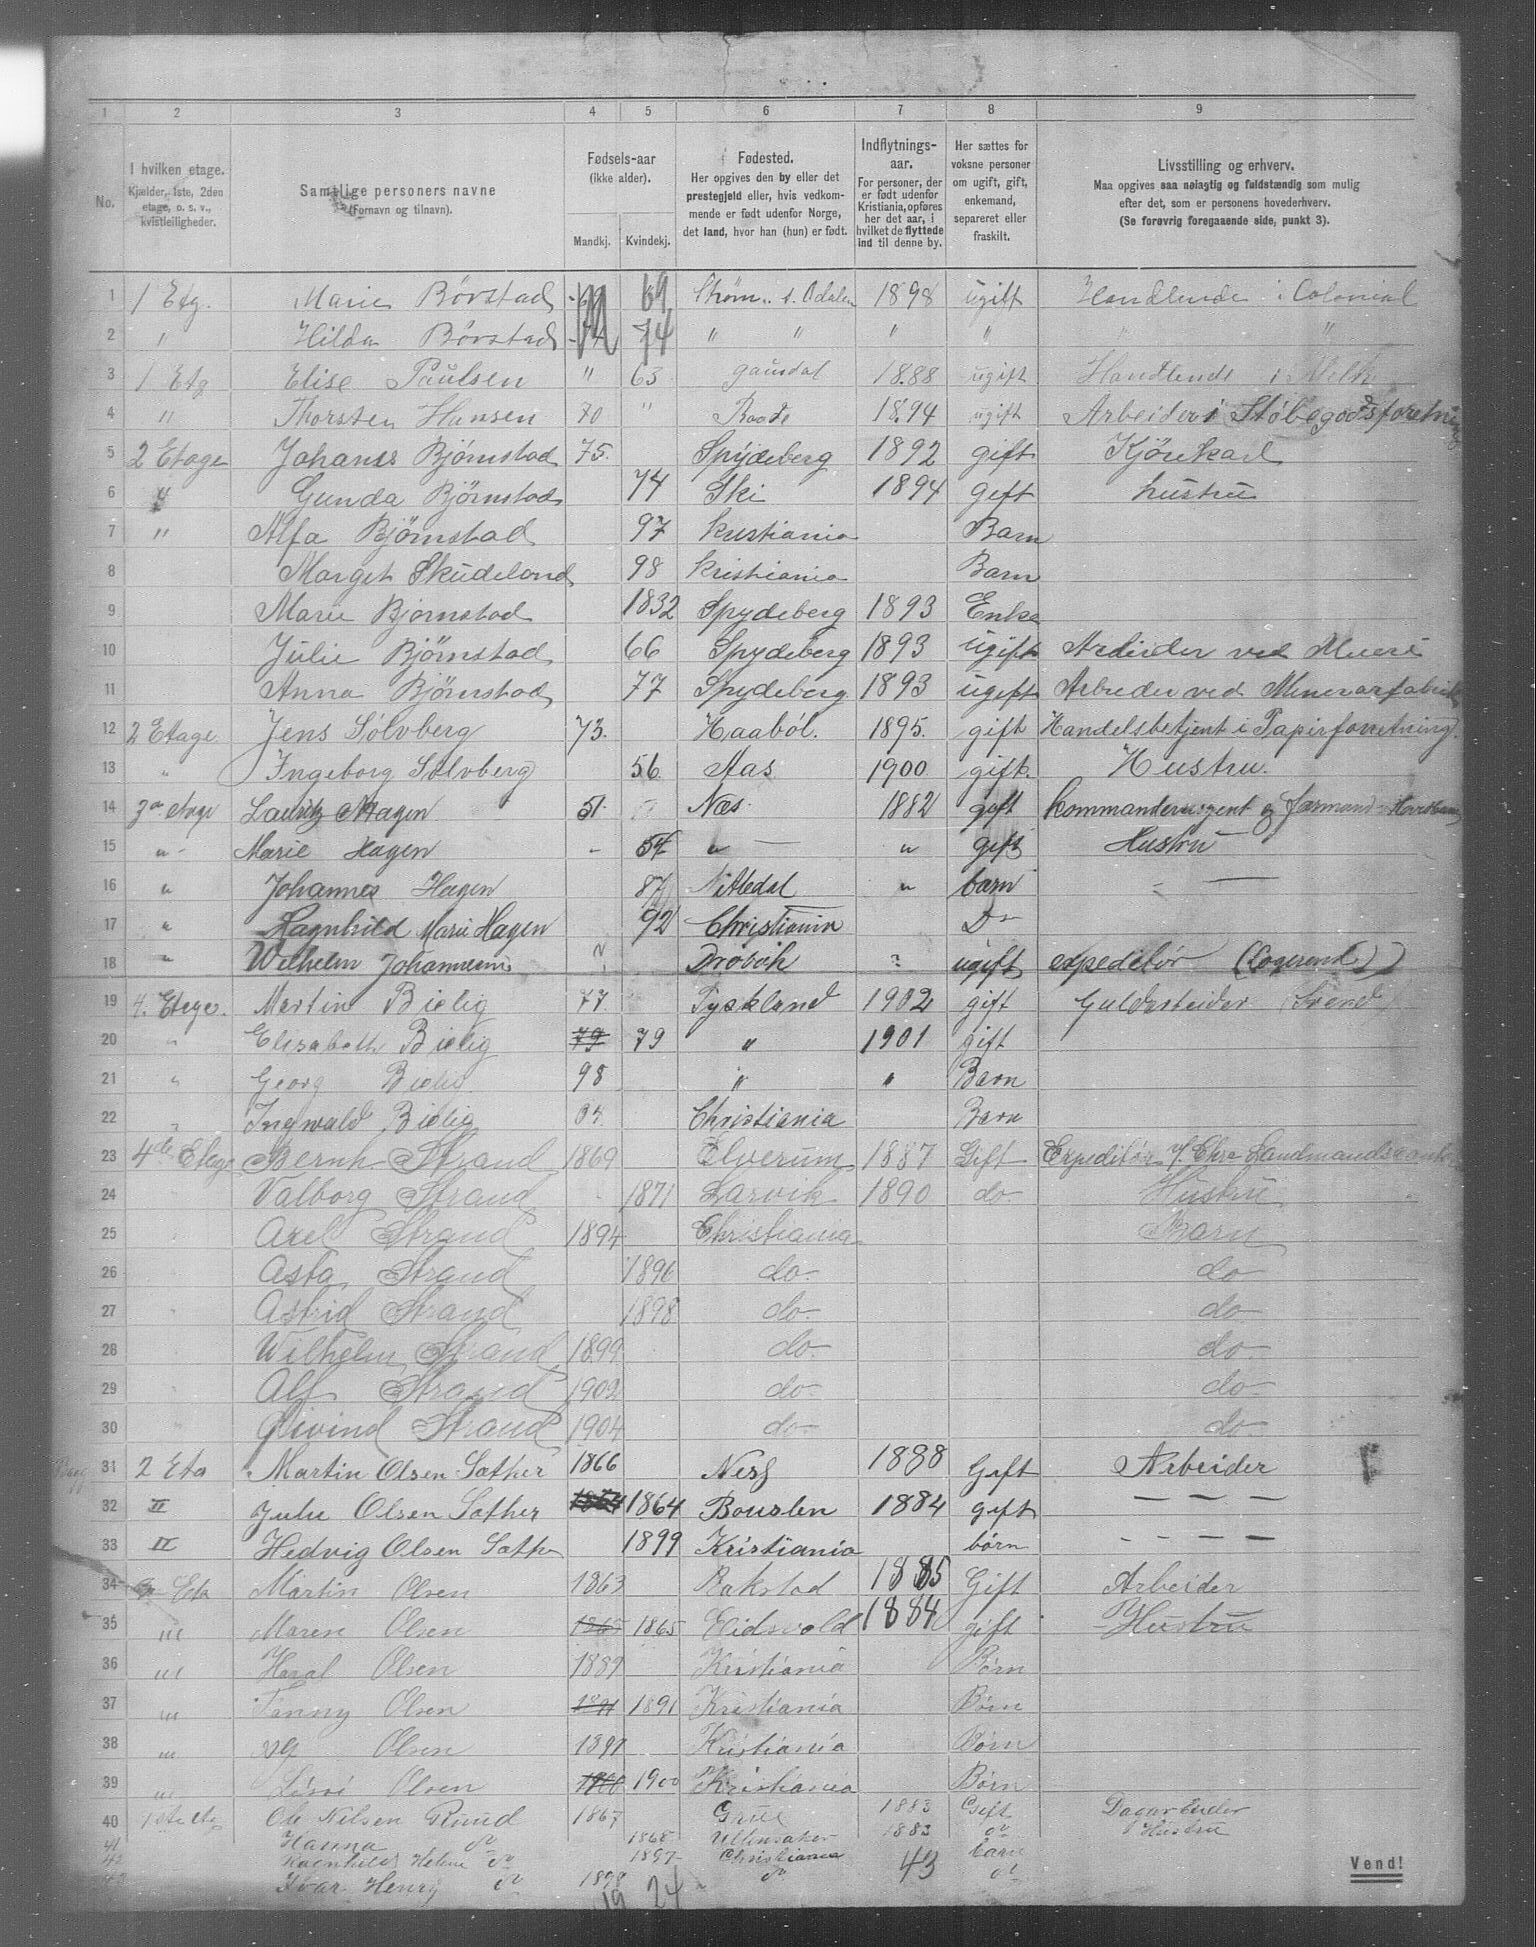 1 2 3 4 5 6 7 8 9
No. | I hvilken etage. Kjælder, 1ste, 2den etage, o. s. v., kvistleiligheder. | Samtlige personers navne (Fornavn og tilnavn). | Fødsels-aar (ikke alder). Mandkj. Kvindekj. | Fødested. Her opgives den by eller det prestegjeld eller, hvis vedkommende er født udenfor Norge, det land, hvor han (hun) er født. | Indflytnings-aar. For personer, der er født udenfor Kristiania, opføres her det aar, i hvilket de flyttede ind til denne by. | Her sættes for voksne personer om ugift, gift, enkemand, separeret eller fraskilt. | Livsstilling og erhverv. Maa opgives saa nøiagtig og fuldstændig som mulig efter det, som er personens hovederhverv. (Se forøvrig foregaaende side, punkt 3).
1 1 Etg. Marie Börstad 69 Strøm s. Odalen 1898 ugift Handlende i Colonial
2 " Hilda Börstad 74 " " " " " "
3 1 Etg Elise Paulsen " 63 Gausdal 1888 ugift Handlende i Melk
4 " Thorsten Hansen 70 " Raade 1894 ugift Arbeider i Stöbegodsforetning
5 2 Etage Johanes Bjørnstad 75. Spydeberg 1892 gift Kjörekarl
6 " Gunda Bjørnstad 74 Ski 1894 gift hustru
7 " Alfa Bjørnstad 97 Kristiania Barn
8 Marget Skudeland 98 Kristiania Barn
9 Marie Bjørnstad 1832 Spydeberg 1893 Enke
10 Julie Björnstad 66 Spydeberg 1893 ugift Arbeider ved
11 Anna Björnstad 77 Spydeberg 1893 ugift Arbeider ved
12 2 Etage Jens Sölvberg 73. Haaböl. 1895. gift Handelsbetjent i Papirforretning.
13 " Ingeborg Sølvberg 56 Aas 1900 gift. Hustru.
14 3die Etage Lauritz Hagen 51. Næs. 1882 gift
15 " - Marie Hagen - 54 " — " gift Hustru
16 " Johannes Hagen 87 Nittedal " barn —
17 " Ragnhild Marie Hagen 92 Christiania Do
18 " Wilhelm Johannesen ? Dröbak ? ugift expeditør (Logerend)
19 4. Etage. Martin Bielig 77. Tyskland 1902 gift Guldarbeider (Svend)
20 " Elisabeth Bielig 79 79 " 1901 gift
21 " Georg Bielig 98 " " Barn
22 " Ingwald Bielig 04. Christiania Barn
23 4de Etage Bernh Strand 1869 Elverum 1887 Gift Expeditør
24 Valborg Strand - 1871 Larvik 1890 do. Hustru
25 Axel Strand 1894 Christiania Barn
26 Asta Strand 1896 do- do
27 Astrid Strand 1898 do- do
28 Wilhelm Strand 1899 do- do
29 Alf Strand 1902 do- do-
30 Øivind Strand 1904 do- do
31 2 Eta Martin Olsen Sæther 1866 Nes 1888 Gift Arbeider
32 II Julie Olsen Sæther 1864 1864 1884 gift — — —
33 II Hedvig Olsen Sæthe 1899 Kristiania børn - - — —
34 Eta Martin Olsen 1863 Rakstad 1885 Gift Arbeider
35 III Maren Olsen 1865 1865 Eidsvold 1884 gift Hustru
36 III Haral Olsen 1889 Kristiania Børn
37 III Fanny Olsen 1891 1891 Kristiania Børn
38 III Olsen 1897 Kristiania Børn
39 III Olsen 1900 1900 Kristiania Børn
40 1ste Etg Ole Nilsen Ruud 1867 Grue 1883 Gift Dagarbeider
41 Hanna do 1868 Ullensaker 1883 do Hustru
42 Ragnhild Helene do 1897 Christiania barn
43 Ivar Henry do 1898 do 43 do
19 24
Vend!